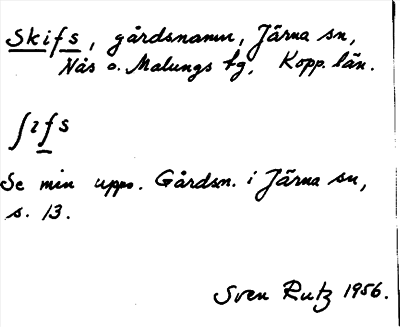 Skifs, gårdsnamn, Järna sn,
Nås o. Malungs tg, Kopp. län.
ʃifs
Se min upps. Gårdsn. i Järna sn,
s. 13.
Sven Rutz 1956.